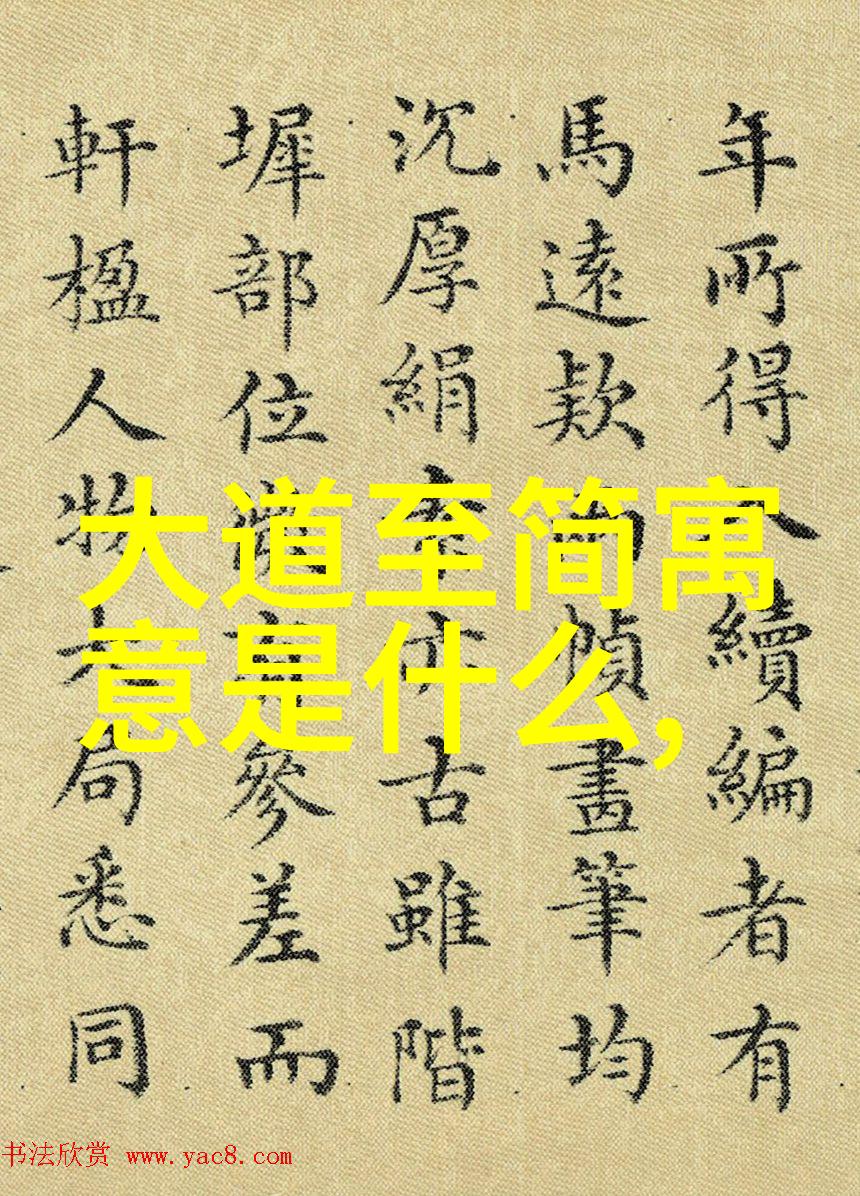 年所得入續編者有
馬遠款兩幀畫筆均
沉厚絹素亦古雖階
墀部位微有參差而
軒楹人物大局悉同
大道至简寓
意是什么,
书法欣赏 www.yac8.com